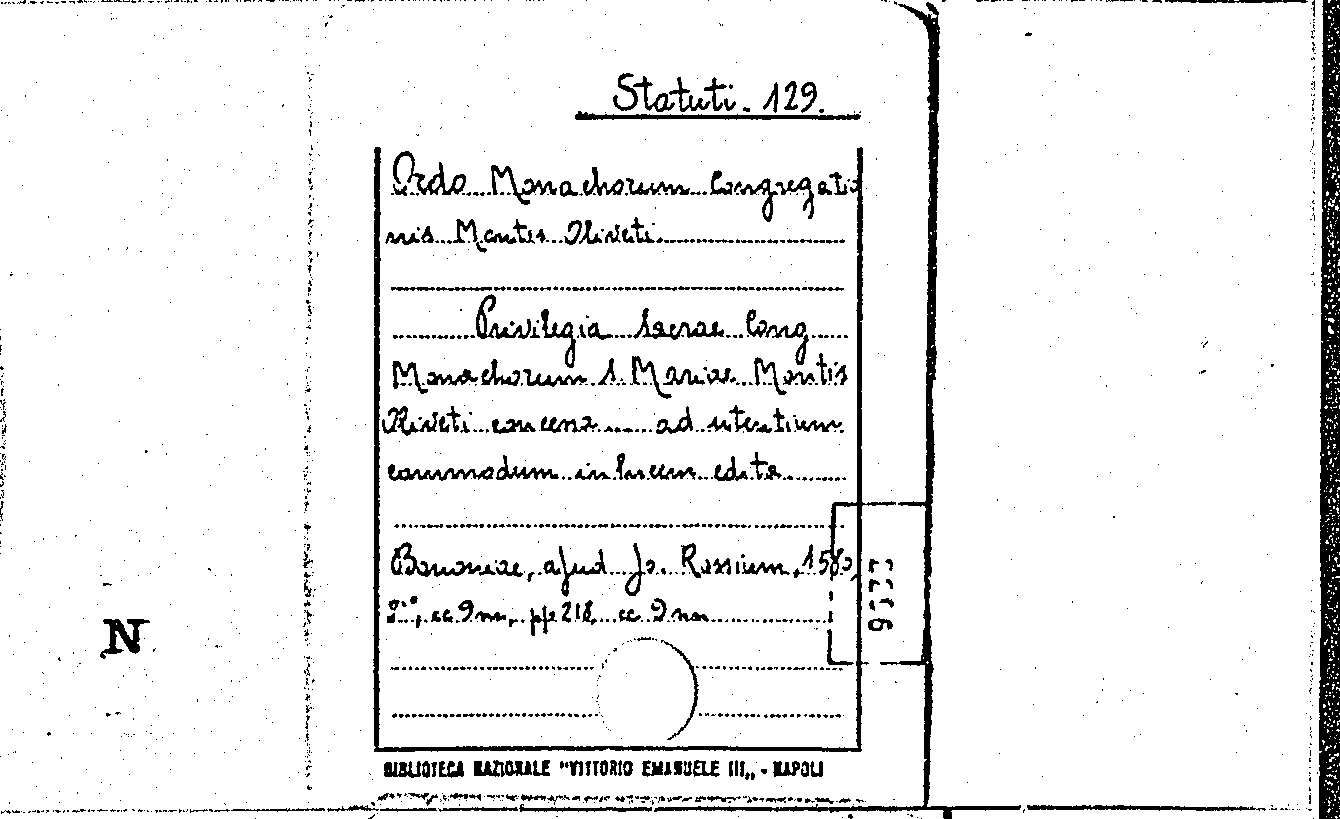 Statuti. 129.
Ordo Monachorum Congregatio
nis Montis Oliveti.
Privilegia Sacrae Cong
Monachorum S. Mariae Montis
Oliveti concena ... ad utentium
commodum in lucem edita.
Bononiae, apud Jo. Rossium, 158
cc 9 nn, pp 218, cc 9 nn
N
BIBLIOTECA NAZIONALE "VITTORIO EMANUELE III„ - NAPOLI